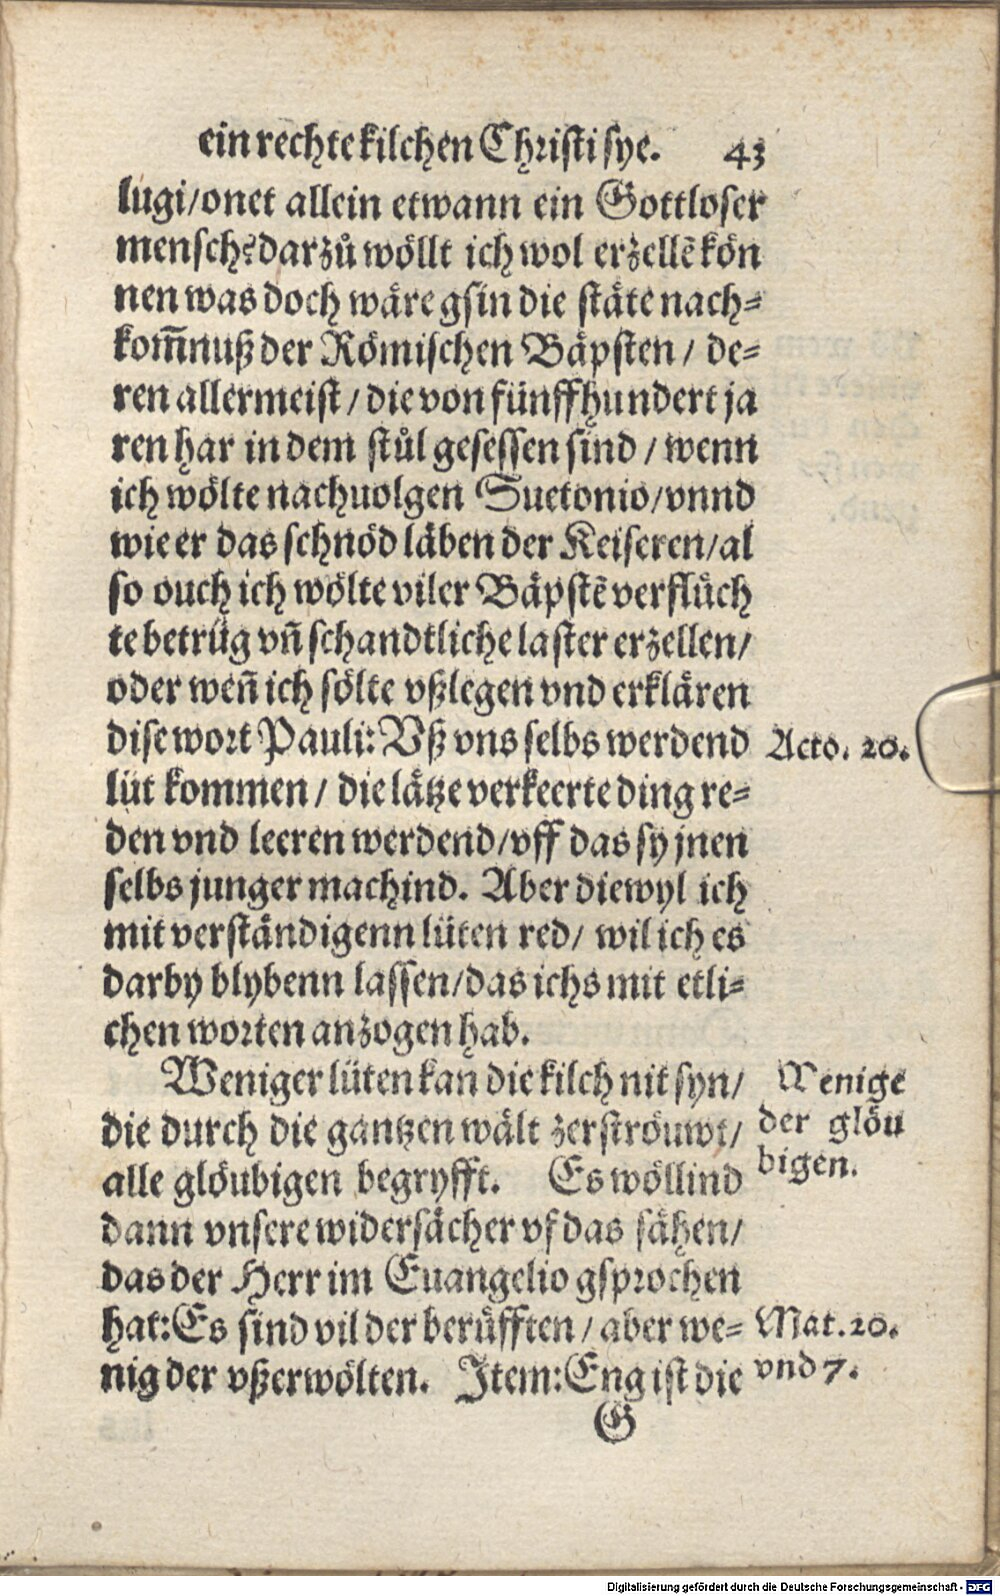 ein rechte kilchen Christi sye. 43
lugi/onet allein etwann ein Gottloser
mensch? darzů wöllt ich wol erzellē kön
nen was doch wäre gsin die stäte nach⸗
kom̃nuß der Römischen Bäpsten/ de⸗
ren allermeist/ die von fünffhundert ja
ren har in dem stůl gesessen sind/ wenn
ich wölte nachuolgen Suetonio/vnnd
wie er das schnöd läben der Keiseren/al
so ouch ich wölte viler Bäpstē verflůch
te betrüg vñ schandtliche laster erzellen/
oder weñ ich sölte vßlegen vnd erklären
dise wort Pauli: Vß vns selbs werdend
Acto. 20.
lüt kommen/ die lätze verkeerte ding re⸗
den vnd leeren werdend/vff das sy jnen
selbs junger machind. Aber diewyl ich
mit verständigenn lüten red/ wil ich es
darby blybenn lassen/das ichs mit etli⸗
chen worten anzogen hab.
Weniger lüten kan die kilch nit syn/
Wenige
die durch die gantzen wält zerströuwt/
der glöu
alle glöubigen begryfft. Es wöllind
bigen.
dann vnsere widersächer vf das sähen/
das der Herr im Euangelio gsprochen
hat: Es sind vil der berůfften/ aber we⸗
Mat. 20.
nig der vßerwölten. Item: Eng ist die
vnd 7.
G
Digitalisierung gefördert durch die Deutsche Forschungsgemeinschaft - DFG